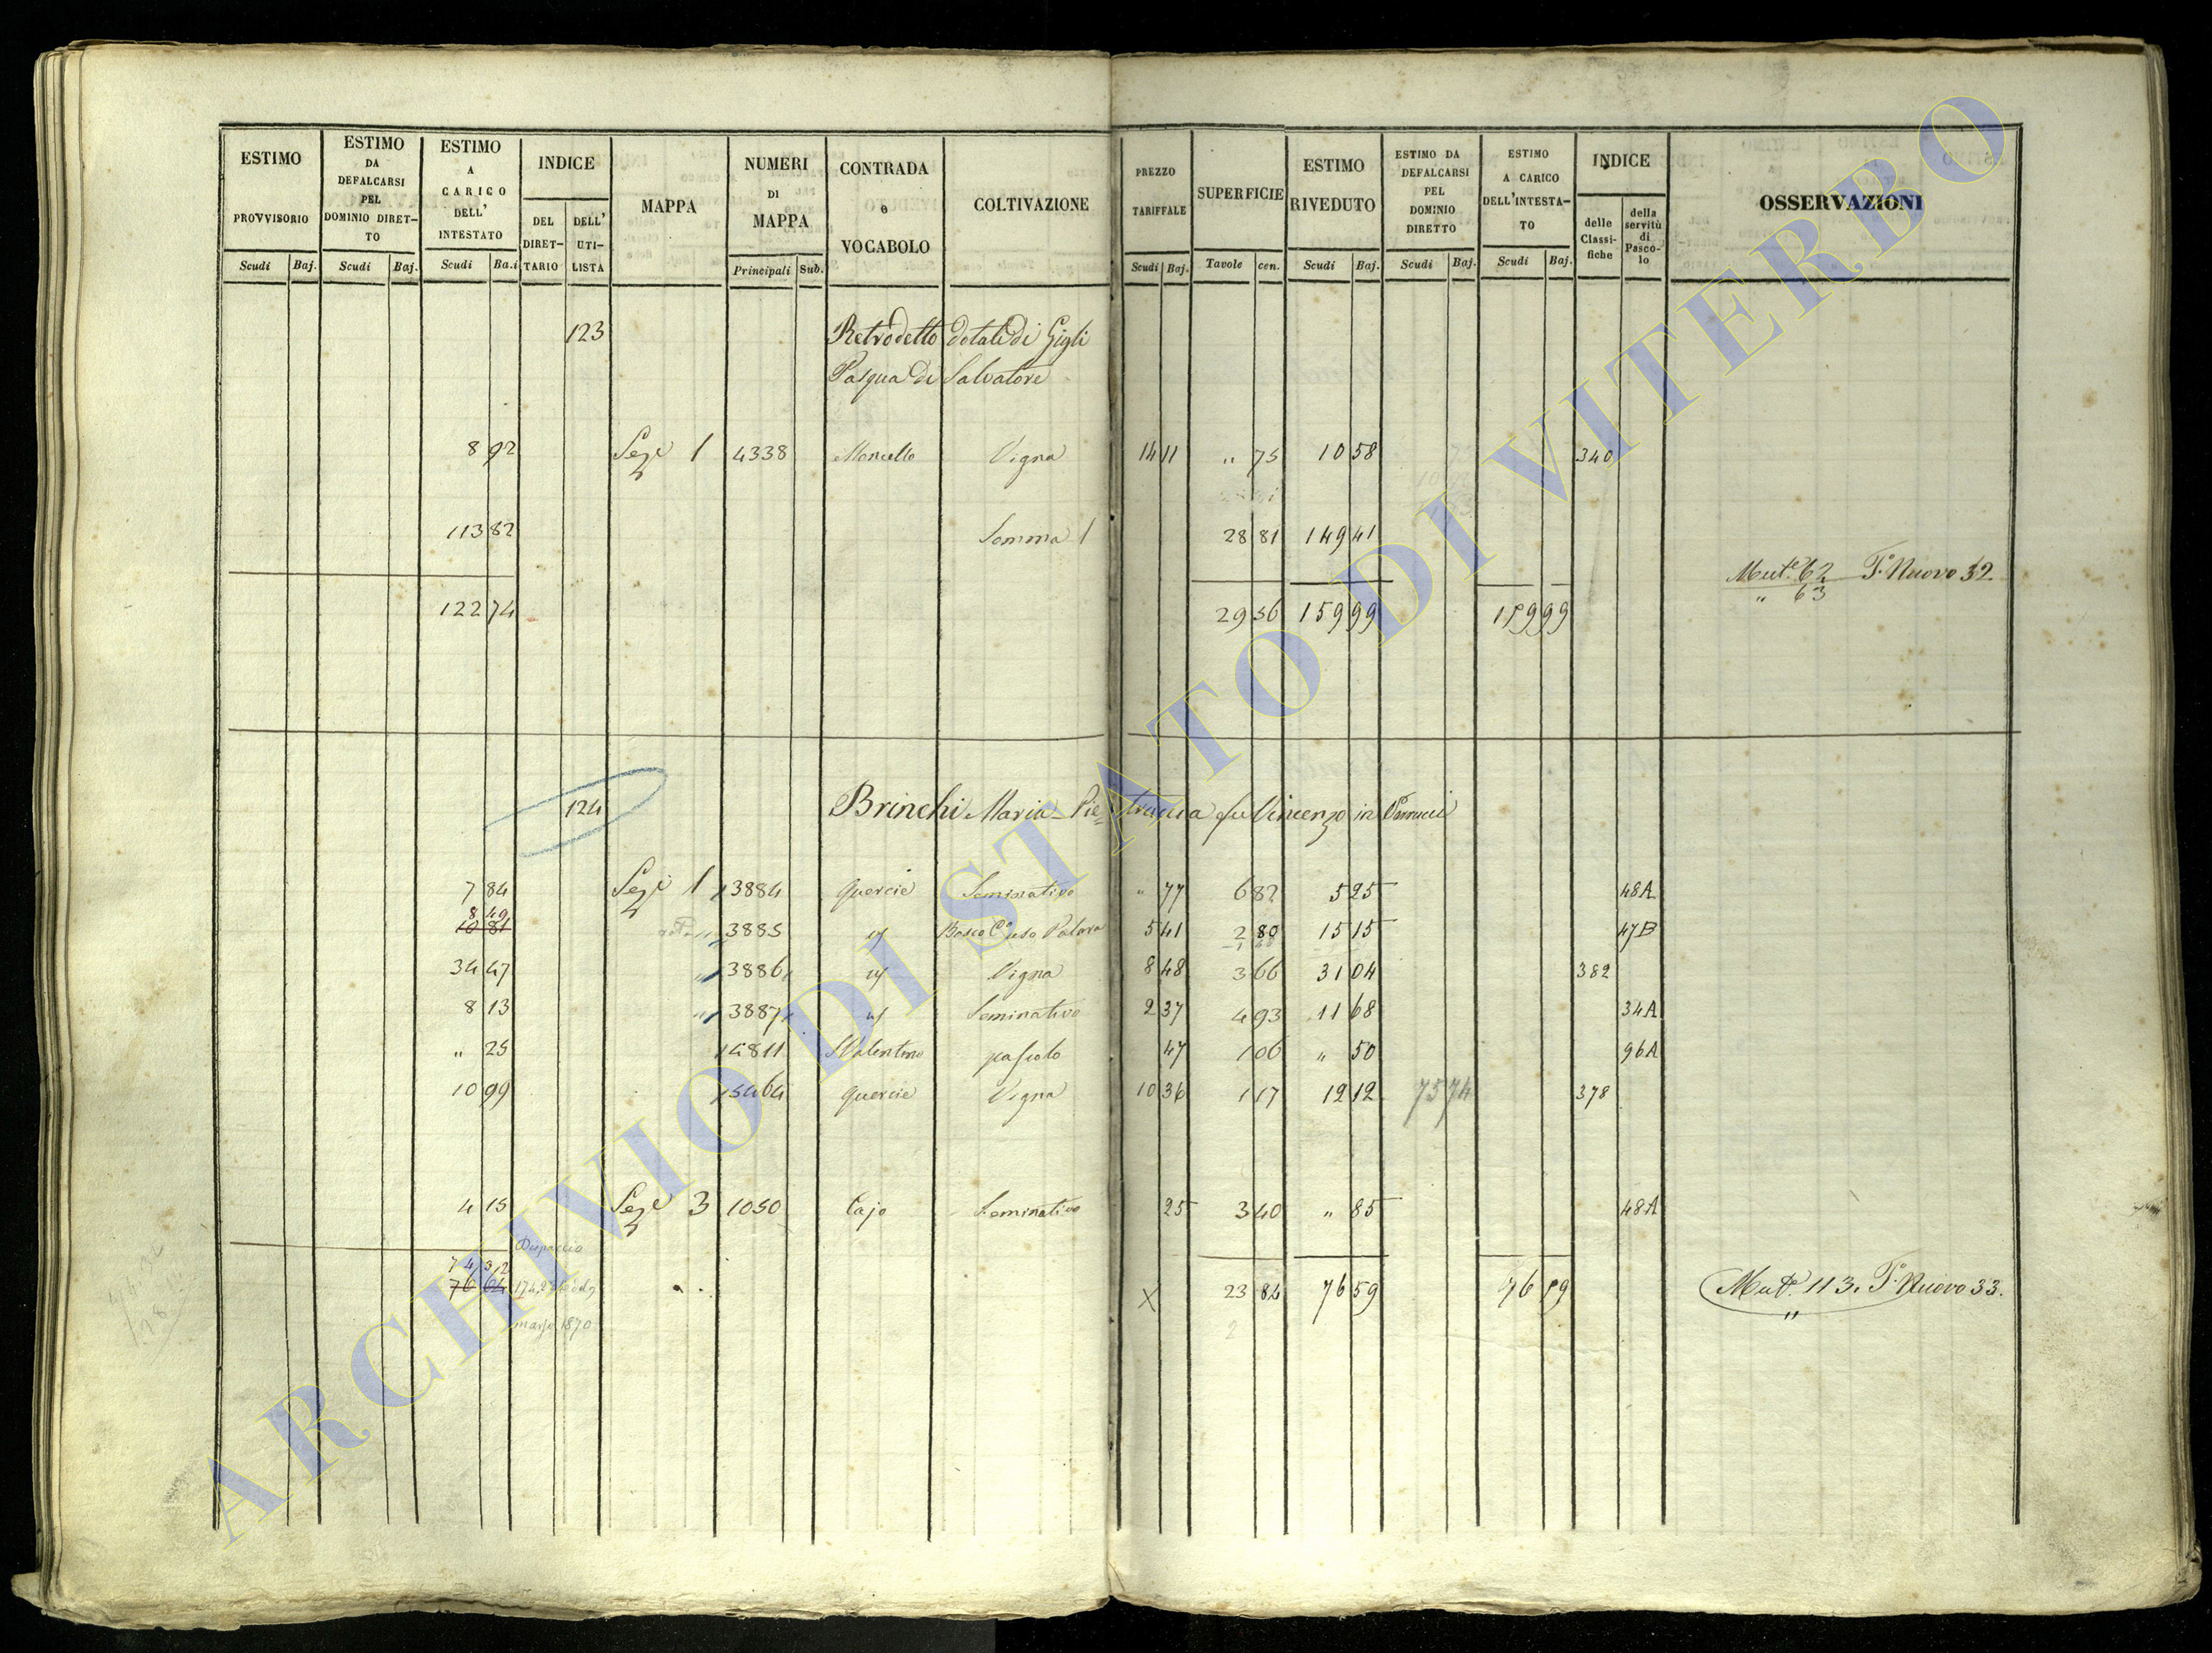 ESTIMO PROVVISORIO Scudi Baj.
ESTIMO DA DEFALCARSI PEL DOMINIO DIRET-TO Scudi Baj.
ESTIMO A CARICO DELL' INTESTATO Scudi Ba.i
INDICE DEL DIRET-TARIO DELL' UTI-LISTA
MAPPA
NUMERI DI MAPPA Principali Sub.
CONTRADA e VOCABOLO
COLTIVAZIONE
PREZZO TARIFFALE Scudi Baj.
SUPERFICIE Tavole cen.
ESTIMO RIVEDUTO Scudi Baj.
ESTIMO DA DEFALCARSI PEL DOMINIO DIRETTO Scudi Baj.
ESTIMO A CARICO DELL'INTESTA-TO Scudi Baj.
INDICE delle Classi-fiche della servitù di Pasco-lo
OSSERVAZIONI
123 Retrodetto dotale di Gigli
Pasqua di Salvatore
8 92 Sez.e 1 4338 Vigna 14 11 " 75 10 58 340
113 82 Somma 1 28 81 149 41
Mut.e 62 P. Nuovo 32
" 63
122 74 29 56 159 99 159 99
124 Brinchi Maria Pie= fu Vincenzo in
7 84 Sez.e 1 3884 Quercie Seminativo " 77 6 82 5 25 48A
8 49
10 81 3885 Bosco 5 41 2 80 15 15 47B
34 47 " 3886 Vigna 8 48 3 66 31 04 382
8 13 " 3887 Seminativo 2 37 4 93 11 68 34A
" 25 4811 S Valentino pascolo 47 1 06 " 50 96A
10 99 5464 Quercie Vigna 10 36 1 17 12 12 75 74 378
4 15 Sez.e 3 1050 Cajo Seminativo 25 3 40 " 85 48A
Dispaccio
74 32
76 64 X 23 84 76 59 76 59 Mut.e 113. P. Nuovo 33.
marzo 1870 "
ARCHIVIO DI STATO DI VITERBO